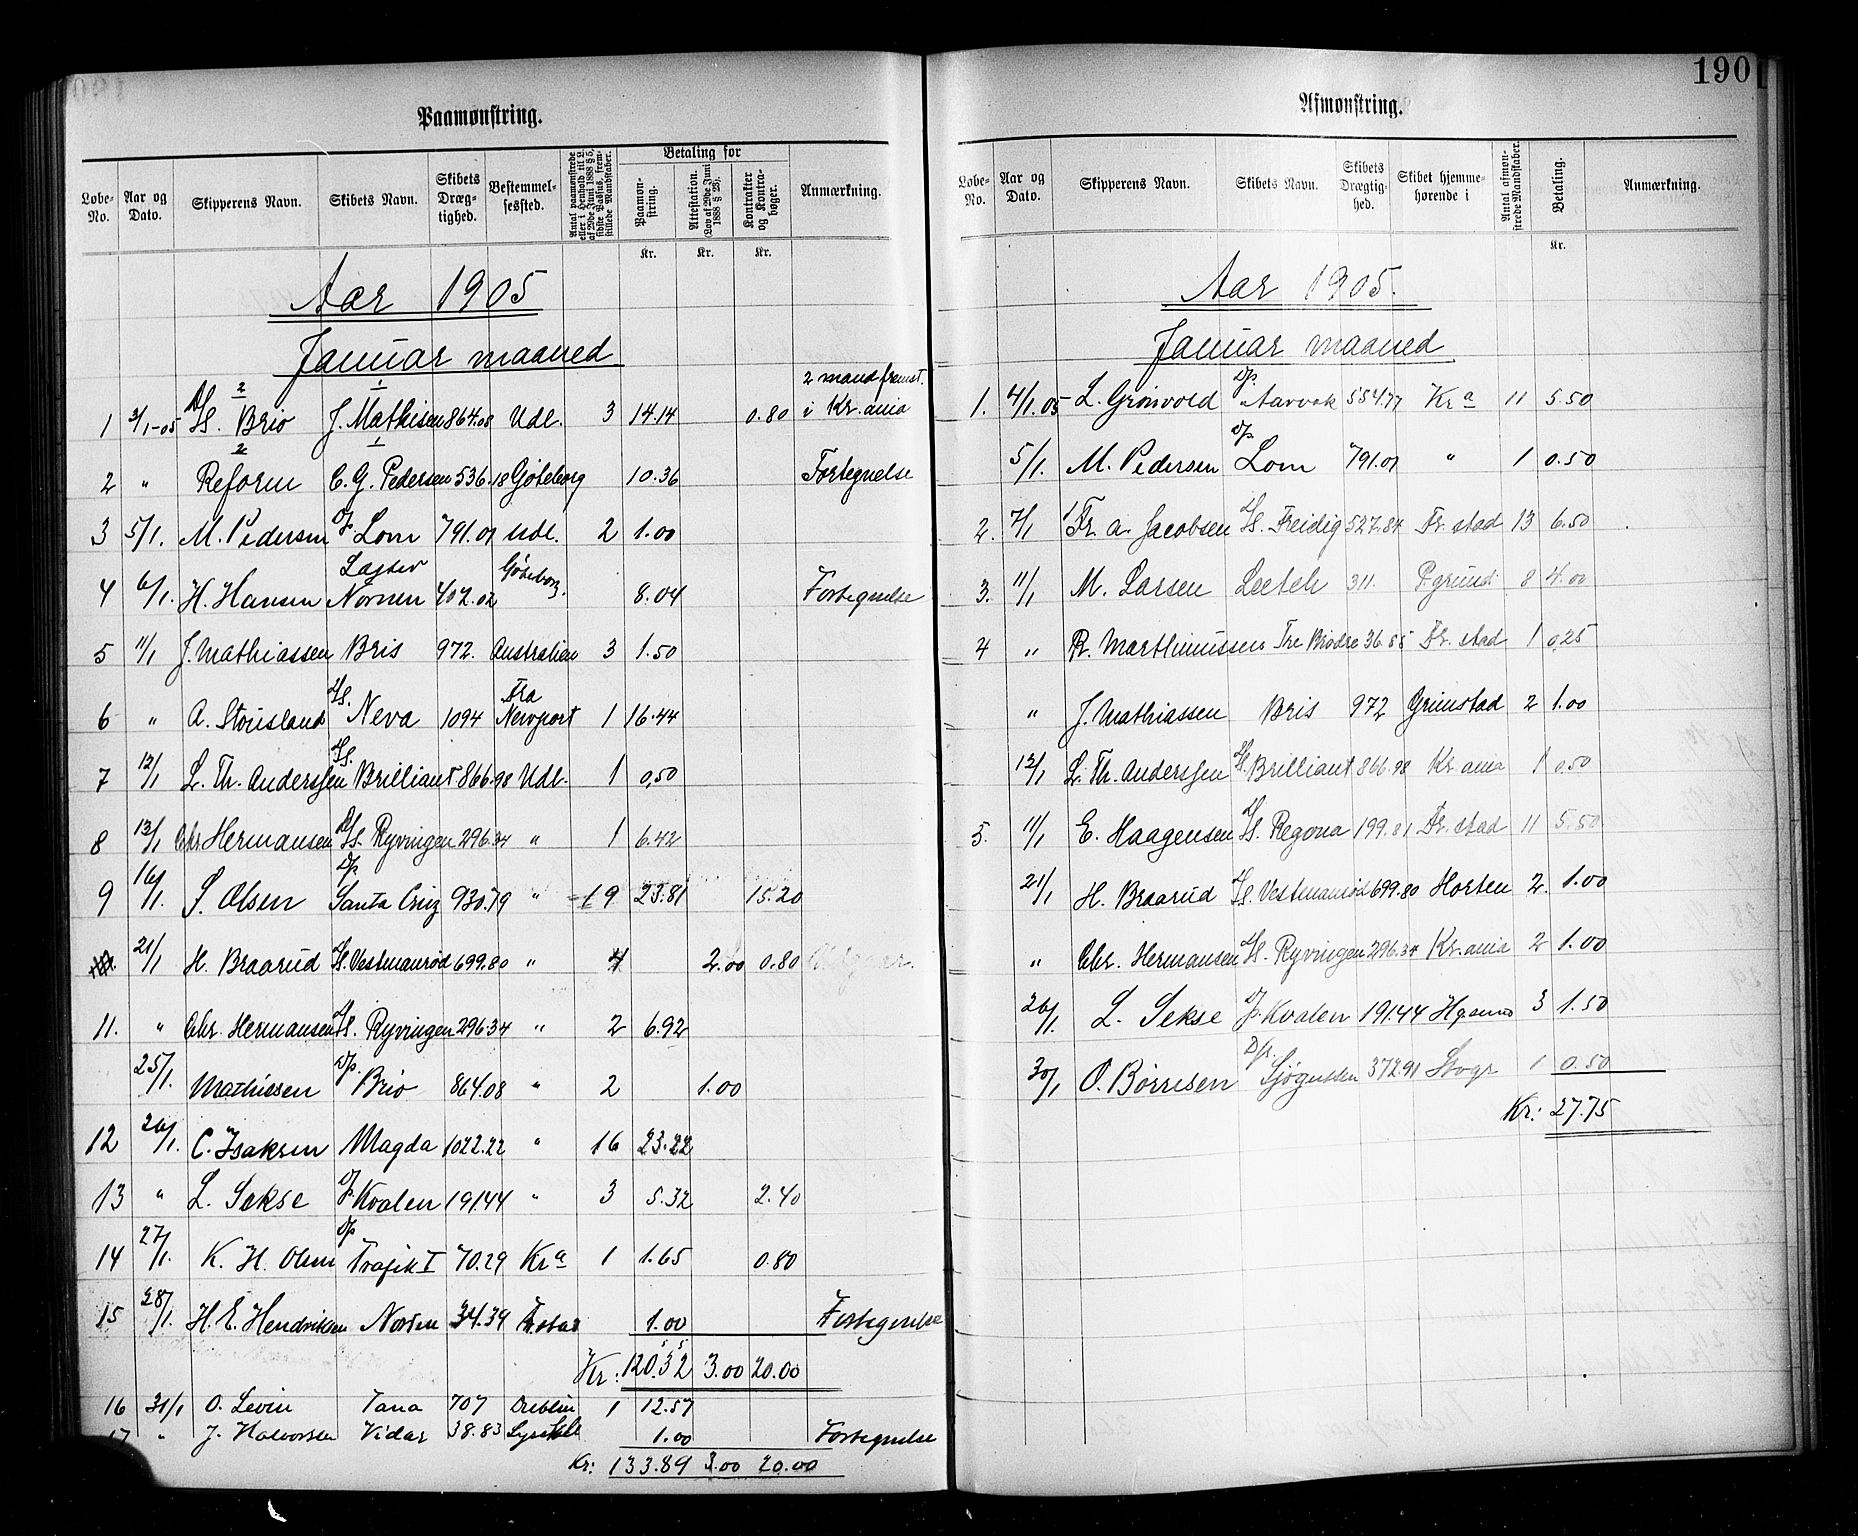 190
Paamønstring.
Løbe-No. | Aar og Dato. | Skipperens Navn. | Skibets Navn. | Skibets Dræg-tighed. | Bestemmel-sessted. | Antal paamønstrede eller i Henhold til L. af 29de Juni 1888 § 5, sidste Passus frem-stillede Mandskaber. | Betaling for | Paamøn-string. | Attestation. (Lov af 29de Juni 1888 § 28). | Kontrakter og Kontra-bøger. | Anmærkning.
Kr. | Kr. | Kr.
Aar 1905
Januar maaned
1 | 3/1-05 | D/S. Brio | J. Mathisen | 864.08 | Udl. | 3 | 14.14 | 0.80 | 2 mand fremst. i Kr.ania
2 | " | Reform | C. G. Pedersen | 536.18 | Göteborg | 10.36 | Fortegnelse
3 | 5/1. | M. Pedersen | Lom | 791.07 | Udl. | 2 | 1.00
4 | 6/1. | H. Hansen | Nornen | 402.02 | Göteborg. | 8.04 | Fortegnelse
5 | 11/1 | J. Mathiassen | Bris | 972. | Australien | 3 | 1.50
6 | " | A. | D/S. Neva | 1094 | Fra Newport | 1 | 16.44
7 | 12/1 | L. Th. Anderssen | D/S. Brilliant | 866.98 | Udl. | 1 | 0,50
8 | 13/1 | Chr. Hermansen | D/S. Ryvingen | 296.34 | " | 1 | 6.42
9 | 16/1. | S. Olsen | D/p. Santa Cruz | 930.79 | " | 19 | 23.81 | 15.20
21/1 | H. Braarud | D/S. Vestmanrød | 699.80 | " | 4 | 2.00 | 0.80
11. | " | Chr. Hermansen | D/S. Ryvingen | 296.34 | " | 2 | 6.92
25/1. | Mathiesen | D/p. Brio | 864.08 | " | 2 | 1.00
12 | 26/1. | C. Isaksen | Magda | 1022.22 | " | 16 | 23.22
13 | " | L. Sekse | Kvalen | 191.44 | " | 3 | 5.32 | 2.40
14 | 27/1. | K. H. Olsen | D/p Trafik I | 70.29 | Kr a | 1 | 1.65 | 0.80
15 | 28/1. | H. E. Hendriksen | 34.39 | 1.00 | Fortegnelse
Kr: | 120.32 | 3.00 | 20.00
16 | 31/1 | O. Levin | Tana | 707 | Dublin | 1 | 12.57
17 | " | J. Halvorsen | Vidar | 38.83 | Lysekil | 1.00 | Fortegnelse
Kr: | 133.89 | 3.00 | 20.00
Afmønstring.
Løbe-No. | Aar og Dato. | Skipperens Navn. | Skibets Navn. | Skibets Drægtig-hed. | Skibet hjemme-hørende i | Antal afmøn-strede Mandskaber. | Betaling. | Anmærkning.
Kr.
Aar 1905.
Januar maaned
1. | 4/1.05 | L. Grönvold | D/p. Aarvak | 554.77 | Kr a | 11 | 5.50
5/1. | M. Pedersen | D/p. Lom | 791.07 | " | 1 | 0.50
2. | 7/1 | Fr. A. Jacobsen | D/S. Freidig | 527.84 | Fr. stad | 13 | 6.50
3. | 11/1 | M. Larsen | 311. | P.grund | 8 | 4.00
4 | " | R. Marthinussen | Tre Brødre | 36.85 | Fr. stad | 1 | 0,25
" | J. Mathiassen | Bris | 972 | Grimstad | 2 | 1.00
12/1 | L. Th. Anderssen | D/S. Brilliant | 866.98 | Kr.ania | 1 | 0.50
5. | 11/1 | E. Haagensen | D/S. Regona | 199.81 | Fr. stad | 11 | 5.50
21/1 | H. Braarud | D/S. Vestmanrød | 699.80 | Horten | 2. | 1.00
" | Chr. Hermansen | D/S. Ryvingen | 296.34 | Kr.ania | 2 | 1.00
26/1. | L. Sekse | Kvalen | 191.44 | 3 | 1.50
30/1 | O. Børresen | D/p. | 372.91 | 1 | 0.50
Kr: 27.75